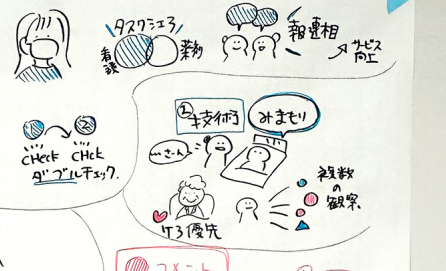 タスクシェア
看護
薬剤
報連相
サービス
向上
CHECK
CHCK
ダブルチェック
② 技術
みまもり
〜さーん
複数
の
観察
ケア優先
コメント